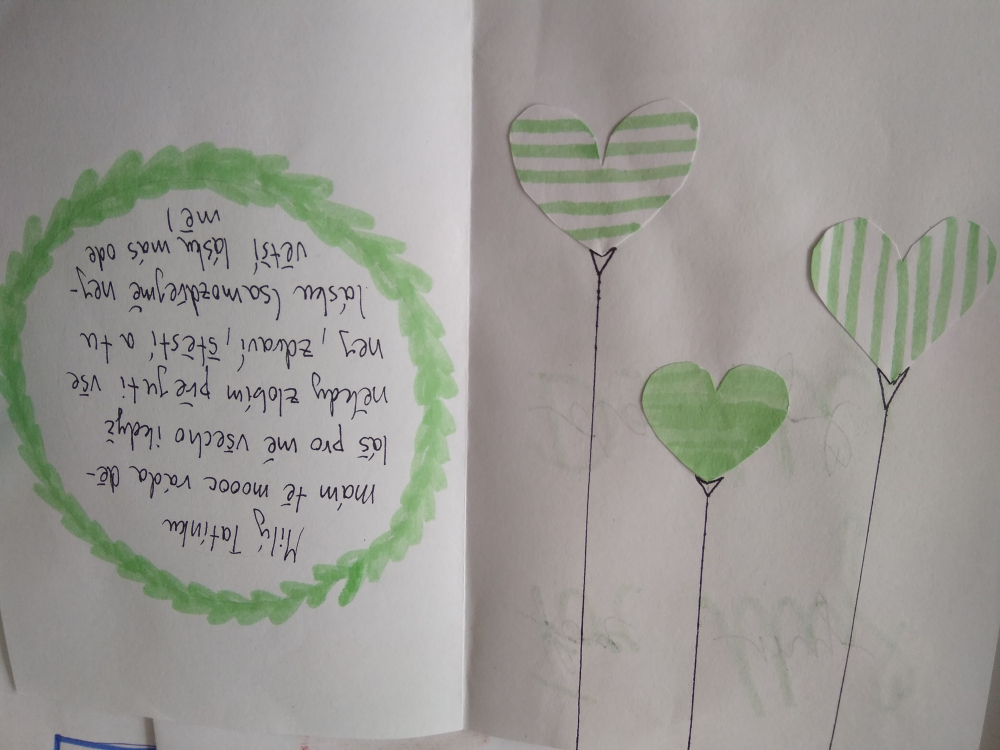 Milý Tatínku
mám tě moooc ráda dě-
láš pro mě všecho ikedyž
někedy zlobím přeju ti vše
nej, zdraví, štěstí a tu
lásku (samozdřejmě nej-
větší lásku máš ode
mě)